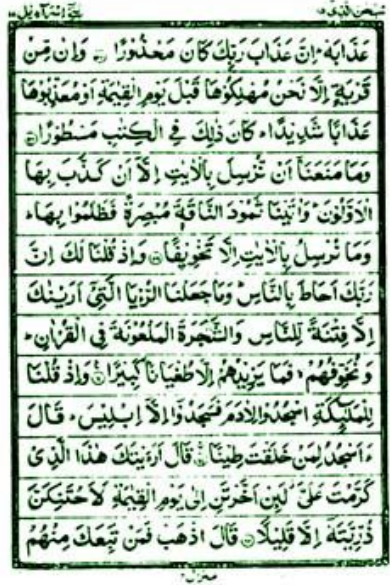 سبحٰن الذی ۱۵ بنیٓ اسرآءیل ۱۷
عَذَابَهٗ ؕ اِنَّ عَذَابَ رَبِّكَ كَانَ مَحْذُوْرًا ۝ وَاِنْ مِّنْ
قَرْیَةٍ اِلَّا نَحْنُ مُهْلِكُوْهَا قَبْلَ یَوْمِ الْقِیٰمَةِ اَوْ مُعَذِّبُوْهَا
عَذَابًا شَدِیْدًا ؕ كَانَ ذٰلِكَ فِی الْكِتٰبِ مَسْطُوْرًا ۝
وَمَا مَنَعَنَاۤ اَنْ نُّرْسِلَ بِالْاٰیٰتِ اِلَّاۤ اَنْ كَذَّبَ بِهَا
الْاَوَّلُوْنَ ؕ وَاٰتَیْنَا ثَمُوْدَ النَّاقَةَ مُبْصِرَةً فَظَلَمُوْا بِهَا ؕ
وَمَا نُرْسِلُ بِالْاٰیٰتِ اِلَّا تَخْوِیْفًا ۝ وَاِذْ قُلْنَا لَكَ اِنَّ
رَبَّكَ اَحَاطَ بِالنَّاسِ ؕ وَمَا جَعَلْنَا الرُّءْیَا الَّتِیْۤ اَرَیْنٰكَ
اِلَّا فِتْنَةً لِّلنَّاسِ وَالشَّجَرَةَ الْمَلْعُوْنَةَ فِی الْقُرْاٰنِ ؕ
وَنُخَوِّفُهُمْ ۙ فَمَا یَزِیْدُهُمْ اِلَّا طُغْیَانًا كَبِیْرًا ۝ وَاِذْ قُلْنَا
لِلْمَلٰٓىِٕكَةِ اسْجُدُوْا لِاٰدَمَ فَسَجَدُوْۤا اِلَّاۤ اِبْلِیْسَ ؕ قَالَ
ءَاَسْجُدُ لِمَنْ خَلَقْتَ طِیْنًا ۝ قَالَ اَرَءَیْتَكَ هٰذَا الَّذِیْ
كَرَّمْتَ عَلَیَّ ؗ لَىِٕنْ اَخَّرْتَنِ اِلٰی یَوْمِ الْقِیٰمَةِ لَاَحْتَنِكَنَّ
ذُرِّیَّتَهٗۤ اِلَّا قَلِیْلًا ۝ قَالَ اذْهَبْ فَمَنْ تَبِعَكَ مِنْهُمْ
منزل ۴